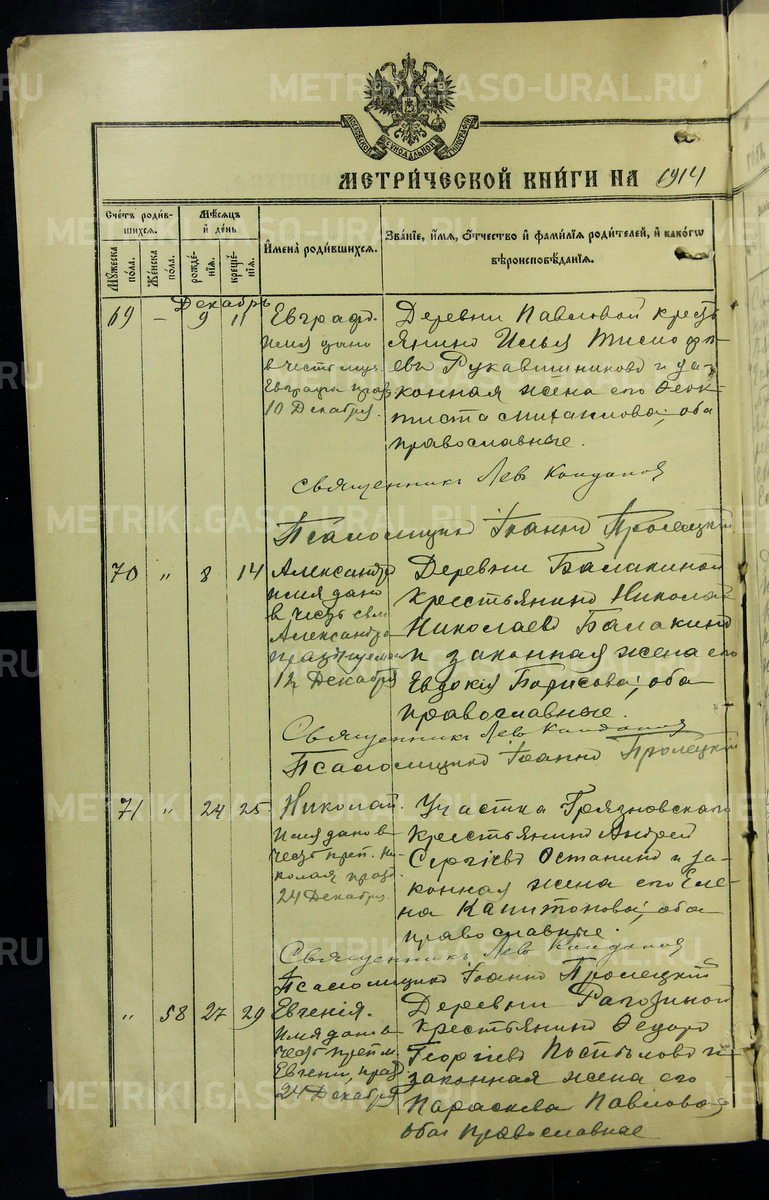 МЕТРИ́ЧЕСКОЙ КНИ́ГИ НА 1914
Сче́тъ роди́в-
шихся.
Му́жеска
по́ла.
Же́нска
по́ла.
Мѣ́сяцъ
и҆ де́нь
рожде́-
нїѧ.
креще́-
нїѧ.
И҆мена̀ роди́вшихся.
Зва́нїе, и҆́мѧ, ѻ҆́тчество и҆ фами́лїѧ роди́телей, и҆ како́гѡ
вѣроисповѣ́данїѧ.
Декабрь
69 – 9 11
Евграфъ.
имя дано
в честь муч.
Евграфа праз
10 Декабря.
Деревни Павловой крест
янинъ Илья Тимофѣ
евъ Рукавишниковъ и за-
конная жена его Ѳеок-
тиста Михаилова, оба
православные.
священникъ Левъ
Псаломщикъ Іоаннъ Пролецкій
70 " 8 14
Александръ
имя дано
в честь свм
Александра
празднуемаго
12 Декабря
Деревни Балакиной
крестьянинъ Николай
Николаевъ Балакинъ
и законная жена его
Евдокія Борисова, оба
православные.
Священникъ Левъ
Псаломщикъ Іоаннъ Пролецкій
71 " 24 25
Николай.
имя дано в
честь преп. Ни-
колая празд.
24 Декабря.
Участка Грязновскаго
крестьянинъ Андрей
Сергіевъ Останинъ и за-
конная жена его Еле-
на Капитонова, оба
православные.
Священникъ Левъ
Псаломщикъ Іоаннъ Пролецкій
" 58 27 29
Евгенія.
имя дано в
честь преп м.
Евгеніи празд.
24 Декабря
Деревни Рагозиной
крестьянинъ Ѳедоръ
Георгіевъ Поспѣловъ и
законная жена его
Параскева Павлова
оба православные
METRIKI.GASO-URAL.RU